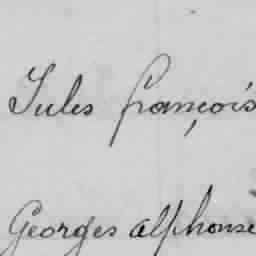 Jules françois
Georges alphonse